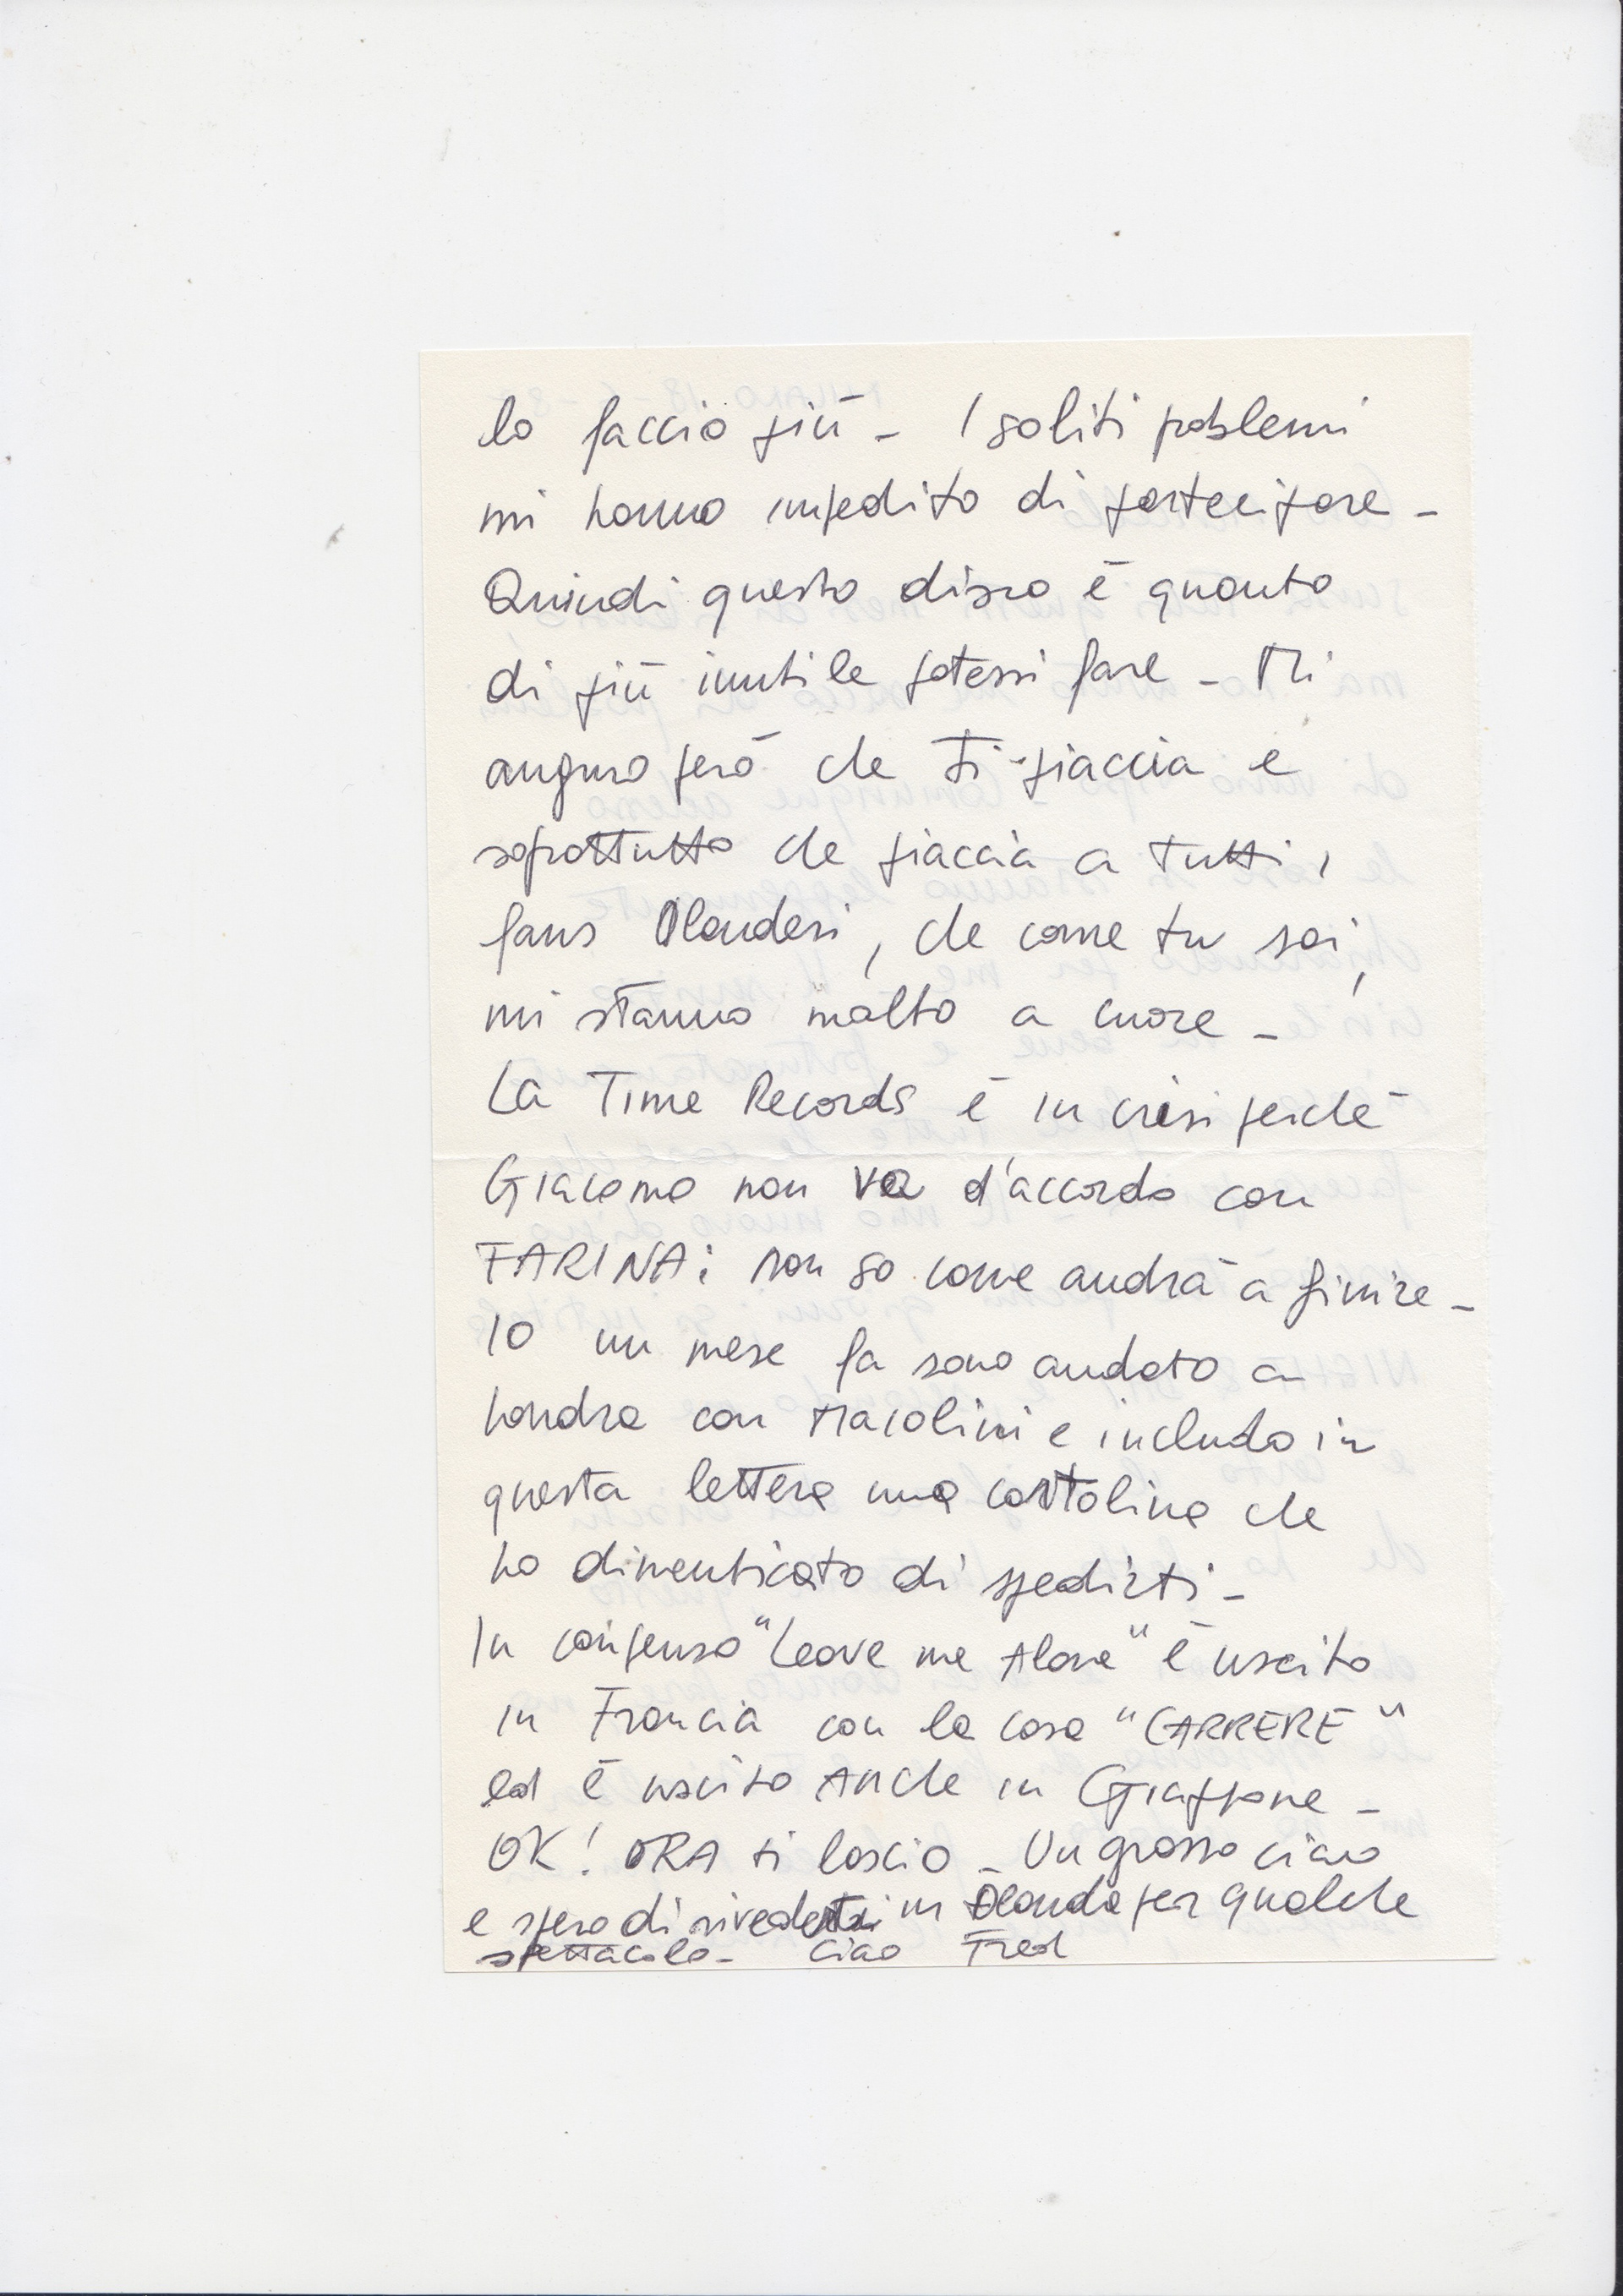 lo faccio più - I soliti problemi
mi hanno impedito di partecipare -
Quindi questo disco è quanto
di più inutile potessi fare - Mi
auguro però che ti piaccia e
soprattutto che piaccia a tutti i
fans Olandesi, che come tu sai,
mi stanno molto a cuore -
La Time Records è in crisi perché
Giacomo non va d'accordo con
FARINA; non so come andrà a finire -
IO un mese fa sono andato a
Londra con Macolini e includo in
questa lettera una cartolina che
ho dimenticato di spedirti -
In compenso "Leave me Alone" è uscito
in Francia con la casa "CARRERE"
ed è uscito anche in Giappone -
OK! ORA ti lascio - Un grosso ciao
e spero di rivederti in Olanda per qualche
spettacolo - Ciao Fred